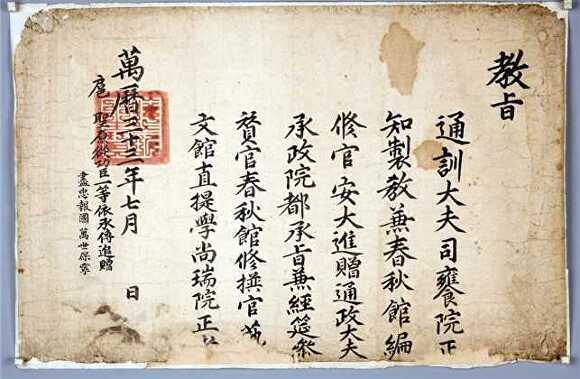 教旨
通訓大夫司饔院正
知製教兼春秋館編
修官安大進贈通政大夫
承政院都承旨兼經筵參
贊官春秋館修撰官藝
文館直提學尚瑞院正
萬曆三十三年七月 日
扈聖原從功臣一等依承傳追贈
盡忠報國萬世保寧